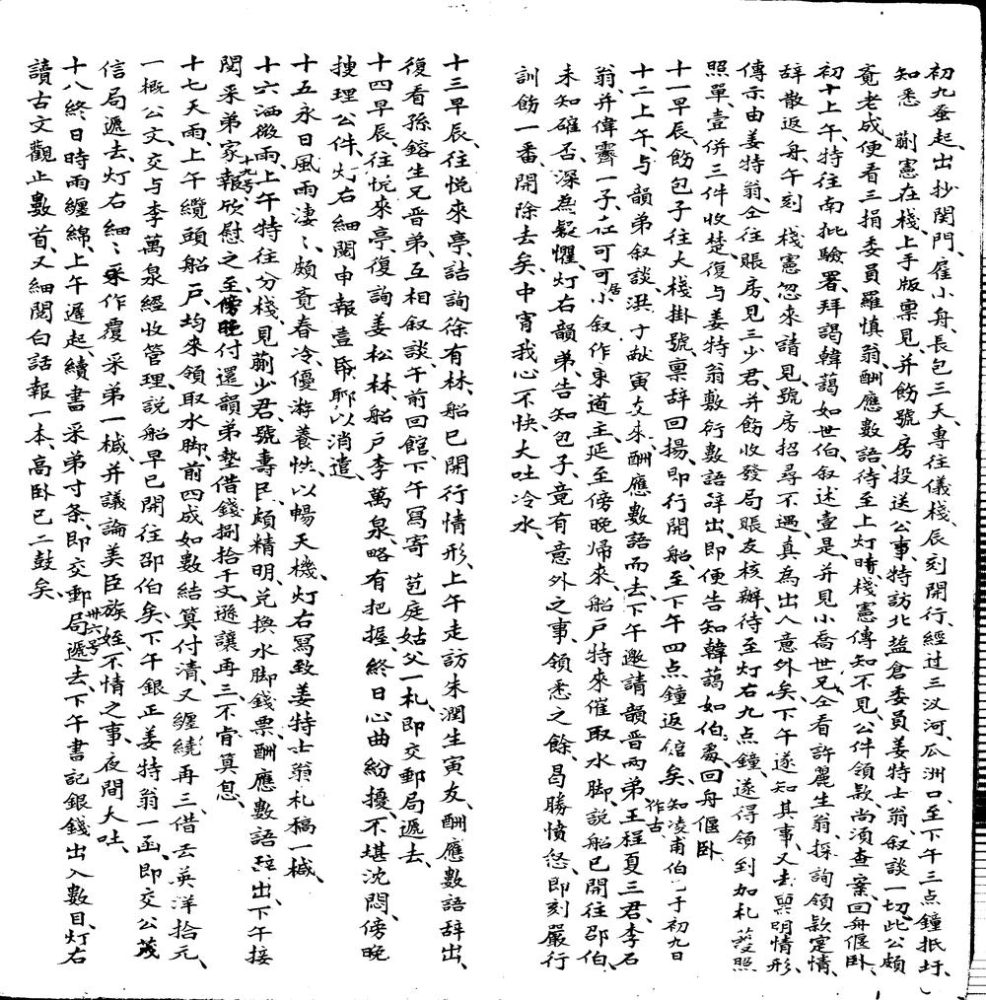 初九蚤起、出抄関門、雇小舟、長包三天、專往儀棧、辰刻開行、經过三汊河、瓜洲口、至下午三点鐘抵圩、
知悉　蒯憲在棧、上手版稟見、并飭號房投送公事、特訪北盐倉委員姜特士翁、叙談一切、此公頗
竟老成、便看三捐委員羅慎翁、酬應數語、待至上灯時、棧憲傳知不見、公件領款、尚須查案、回舟偃卧、
初十上午、特往南批驗署、拜謁韓藹如世伯、叙述壹是、并見小喬世兄、仝看許麗生翁、探詢領款定情、
辞散返舟、午刻棧憲忽來請見、號房招尋不遇、真為出人意外矣、下午遂知其事、又去稟明情形、
傳示由姜特翁、仝往賬房、見三少君、并飭收發局賬友核辦、待至灯右九点鐘、遂得領到加札護照
照單、壹併三件收楚、復与姜特翁敷衍數語辞出、即便告知韓藹如伯處、回舟偃卧、
十一早辰、飭包子往大棧掛號、稟辞回揚、即行開船、至下午四点鐘返館矣、知凌甫伯已于初九日作古
十二上午、与韻弟叙談、洪于猷寅友來酬應數語而去、下午邀請韻晋兩弟、王程夏三君、李石
翁、并偉霽一子、在可可居小叙、作東道主、延至傍晚歸來、船戶特來催取水脚、説船已開往邵伯、
未知確否、深為疑懼、灯右韻弟告知包子、竟有意外之事、領悉之餘、曷勝憤怒、即刻嚴行
訓飭一番、開除去矣、中宵我心不快、大吐冷水、
十三早辰、往悅來亭、詰詢徐有林、船已開行情形、上午走訪朱潤生寅友、酬應數語辞出、
復看孫鎔生兄晋弟、互相叙談、午前回館、下午寫寄　苞庭姑父一札、即交郵局遞去、
十四早辰、往悅來亭、復詢姜松林、船戶李萬泉、略有把握、終日心曲紛擾、不堪沈悶、傍晚
捜理公件、灯右細閱申報壹帋、聊以消遣、
十五永日風雨凄〻、頗竟春冷、優游養怏、以暢天機、灯右寫致姜特士翁札稿一槭、
十六洒微雨、上午特往分棧、見蒯少君、號壽民、頗精明、兑換水脚錢票、酬應數語辞出、下午接
閱采弟家報十九号、欣慰之至、傍晚付還韻弟墊借錢捌拾千文、遜讓再三、不肯算息、
十七天雨、上午纜頭船戶、均來領取水脚、前四成如數結算付清、又纏繞再三、借去英洋拾元、
一概公文、交与李萬泉經收管理、説船早已開往邵伯矣、下午銀正姜特翁一函、即交公茂
信局遞去、灯右細〻采作覆采弟一槭、并議論美臣族姪、不情之事、夜間大吐、
十八終日時雨纏綿、上午遲起、續書采弟寸条、即交郵局遞去卅六号、下午書記銀錢出入數目、灯右
讀古文觀止數首、又細閱白話報一本、高卧已二鼓矣、